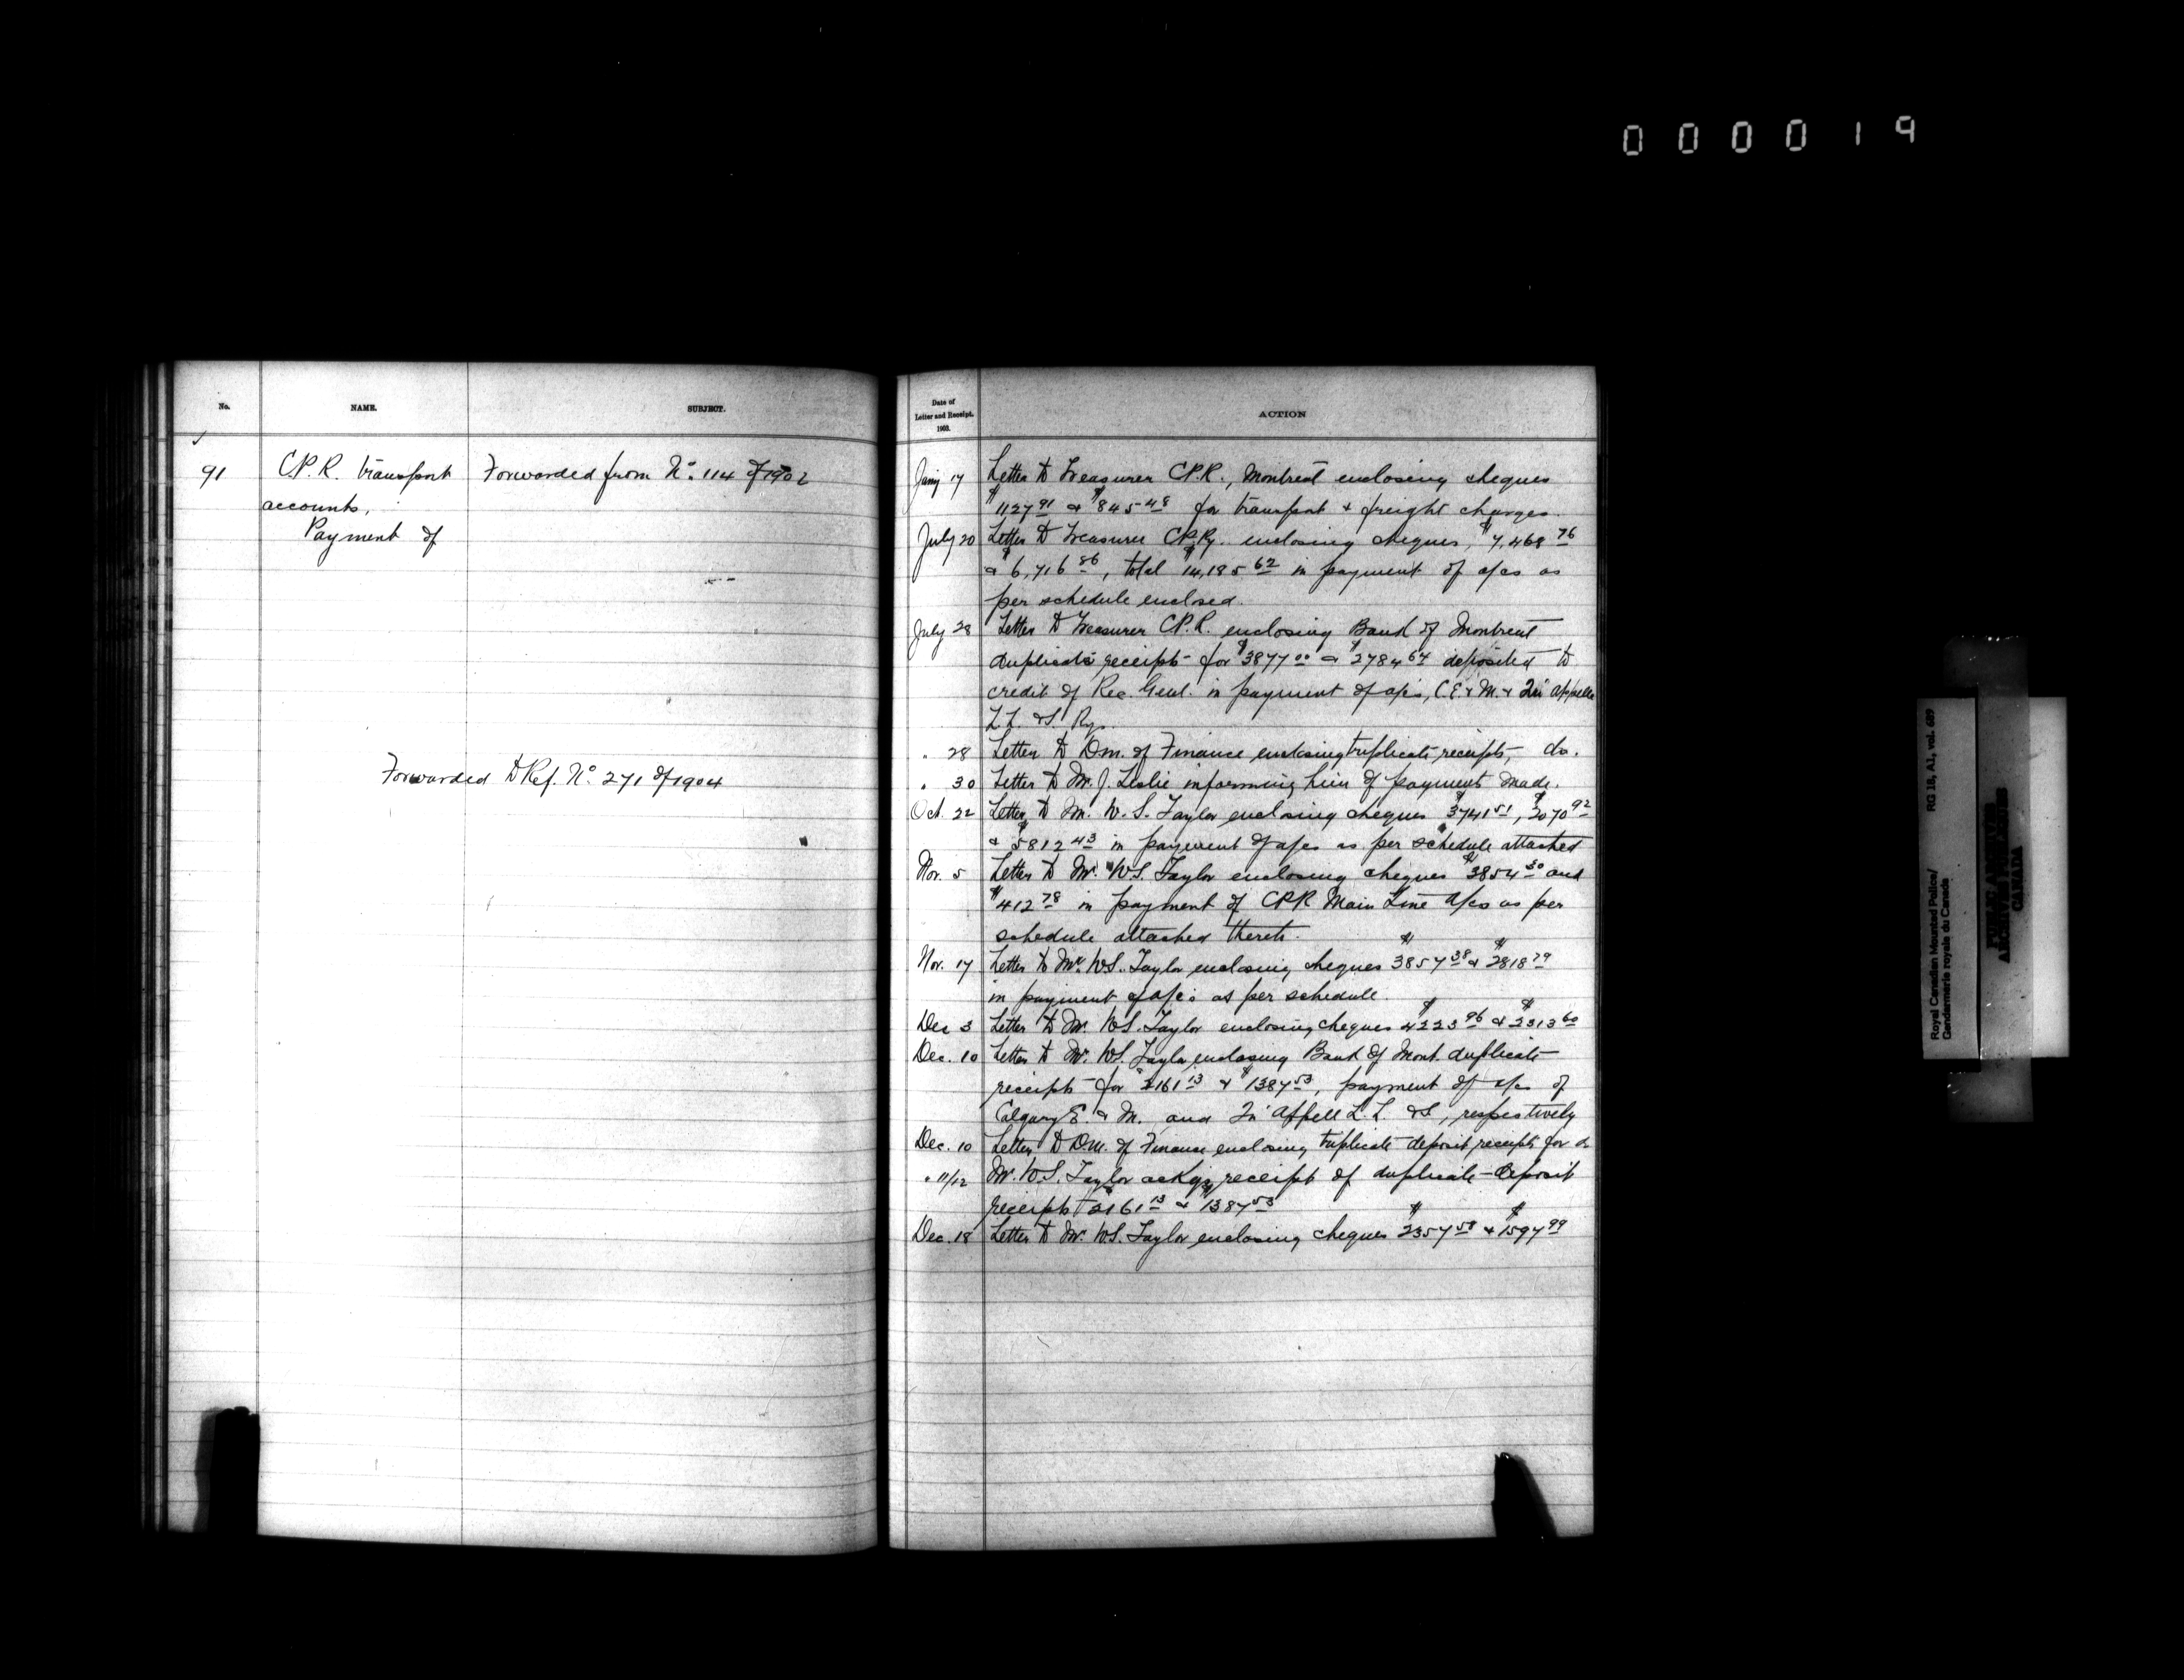 000019
No.
NAME.
SUBJECT.
91
C.P.R. transport
accounts,
Payment of
Forwarded from No. 114 of 1902
Forwarded to Ref. No. 271 of 1904
Date of
Letter and Receipt.
1903.
ACTION
Jany 17 Letter to Treasurer C.P.R., Montreal enclosing cheques
$1127 91 & $845 48 for transport & freight charges.
July 20 Letter to Treasurer C.P.Ry. enclosing cheques, $7,468 76
& $6,716 86, total $14,185 62 in payment of a/cs as
per schedule enclosed.
July 28 Letter to Treasurer C.P.R. enclosing Bank of Montreal
duplicate receipts for $3877 00 & $2784 64 deposited to
credit of Rec. Genl. in payment of a/cs, C.E. & M. & Qu'Appelle
L.L. & S. Rys.
" 28 Letter to D.m. of Finance enclosing triplicate receipts, do.
" 30 Letter to Mr. J. Leslie informing him of payments made.
Oct. 22 Letter to Mr. W. S. Taylor enclosing cheques $3741 51, $2070 92
& $5812 43 in payment of a/cs as per schedule attached
Nov. 5 Letter to Mr. W.S. Taylor enclosing cheques $3854 30 and
$412 78 in payment of CPR Main Line a/cs as per
schedule attached thereto.
Nov. 17 Letter to Mr. W.S. Taylor enclosing cheques $3857 38 & $2818 79
in payment of a/cs as per schedule.
Dec 3 Letter to Mr. W.S. Taylor enclosing cheques $4223 96 & $2313 60
Dec. 10 Letter to Mr. W.S. Taylor enclosing Bank of Mont. duplicate
receipts for $2161 13 & $1387 53, payment of a/cs of
Calgary E. & M. and Qu'Appell L. L. & S, respectively
Dec. 10 Letter to D.M. of Finance enclosing triplicate deposit receipts for do
" 11/12 Mr. W.S. Taylor ackgs receipt of duplicate deposit
receipts $2161 13 & $1387 53
Dec. 18 Letter to Mr. W.S. Taylor enclosing cheques $2357 58 & $1597 99
Royal Canadian Mounted Police/ RG 18, A1, vol. 689
Gendarmerie royale du Canada
PUBLIC ARCHIVES
ARCHIVES PUBLIQUES
CANADA